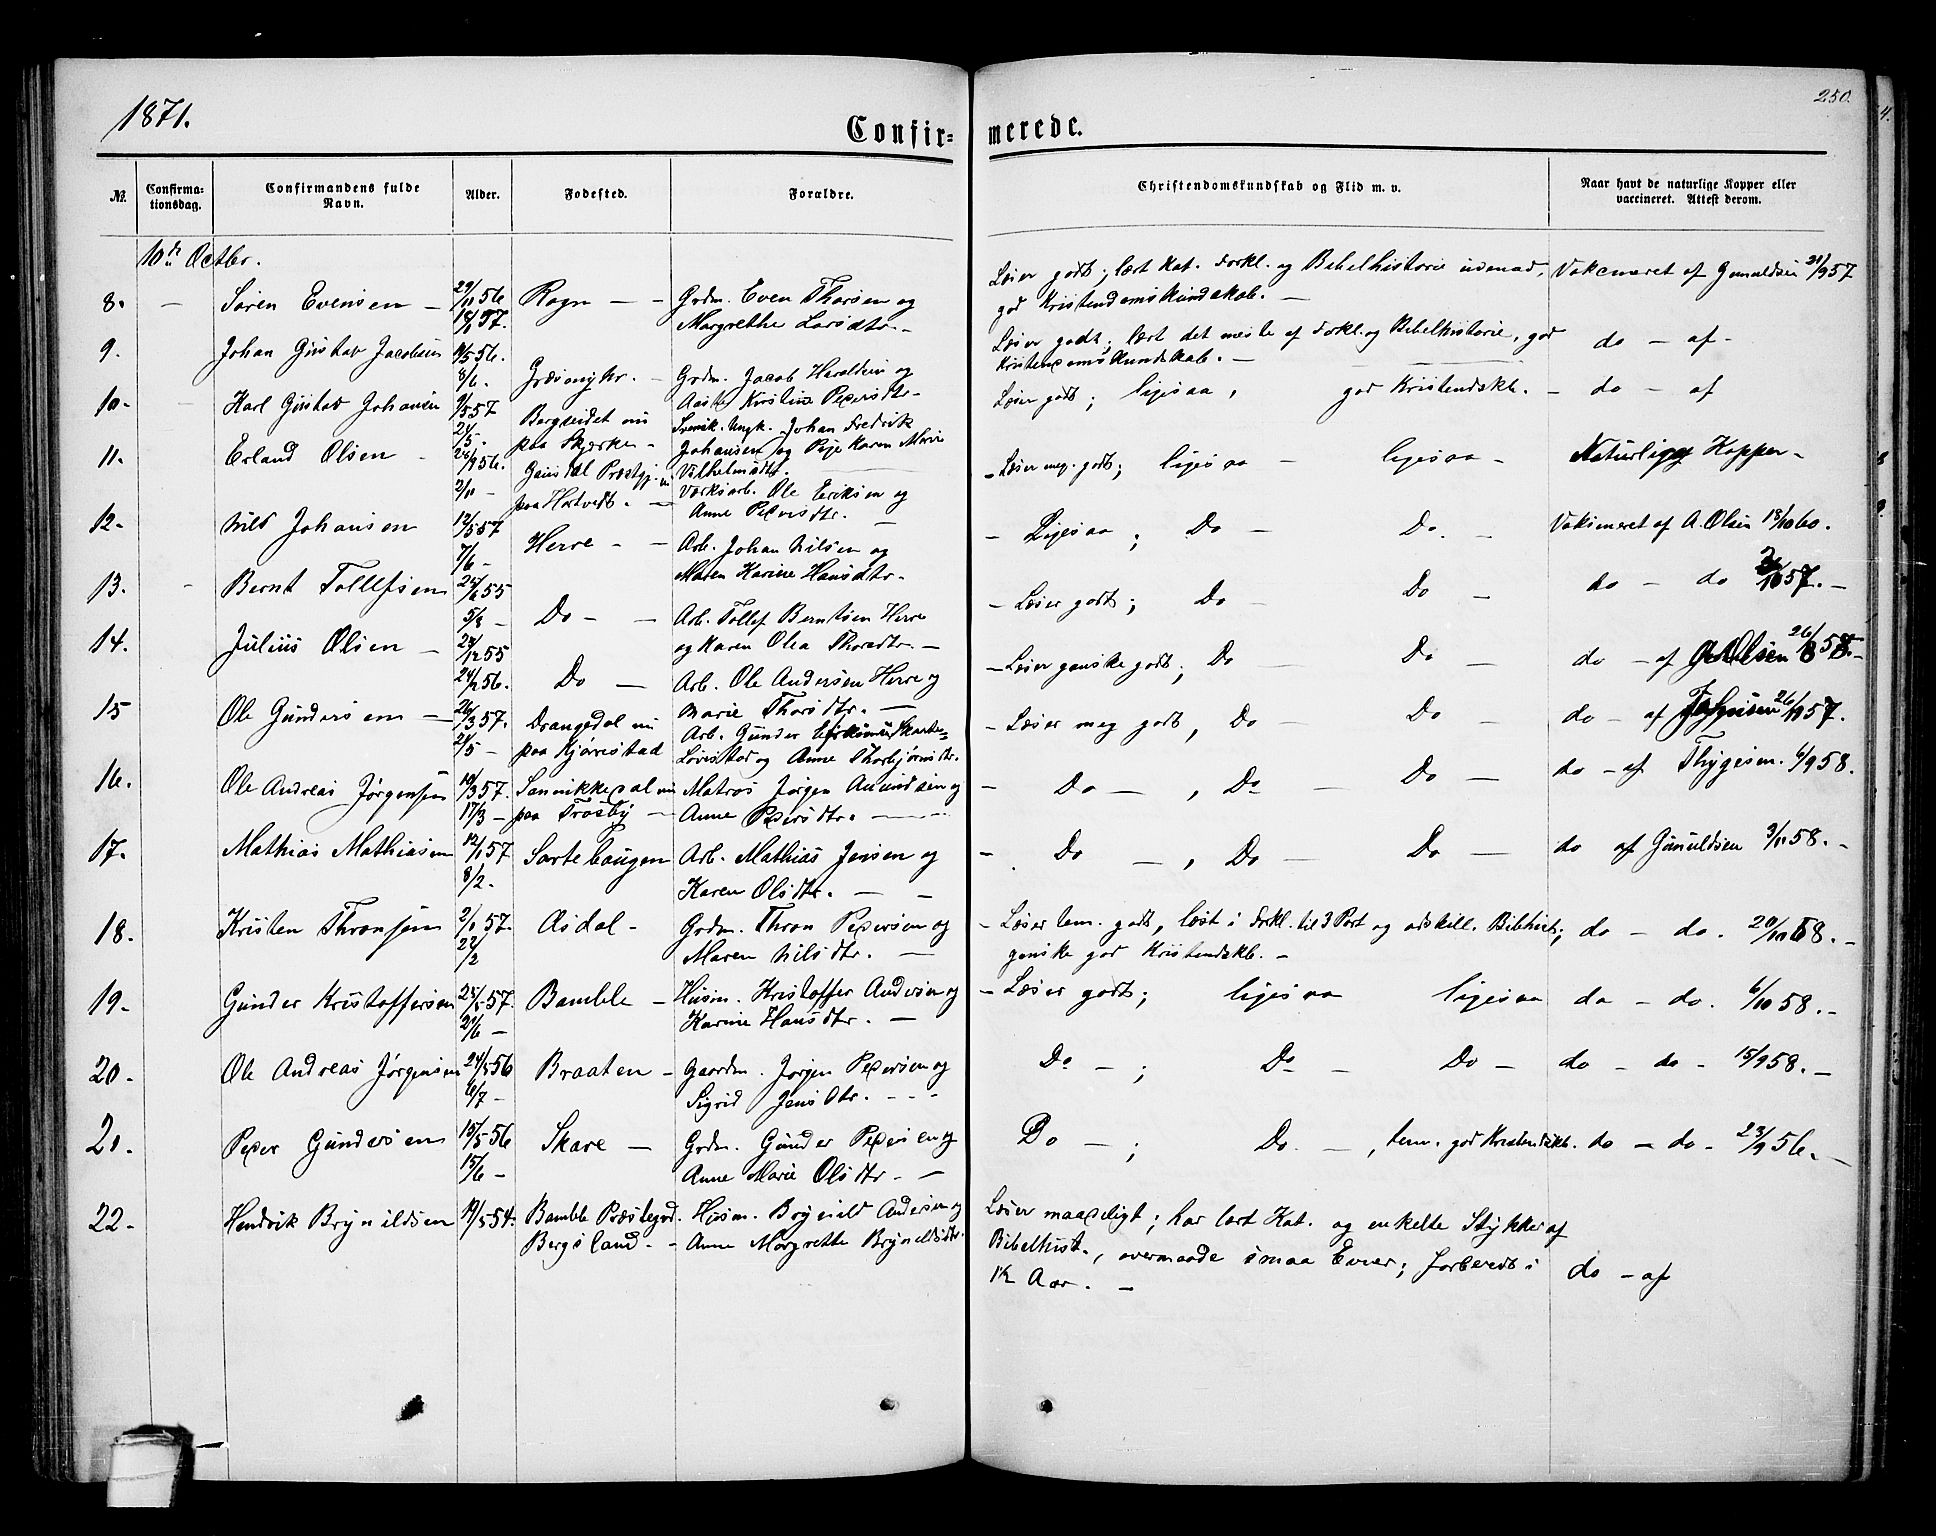 1871.
250.
Confir-
merede.
No.
Confirma-
tionsdag.
Confirmandens fulde
Navn.
Alder.
Fødested.
Forældre.
Christendomskundskab og Flid m. v.
Naar havt de naturlige Kopper eller
vaccineret. Attest derom.
10de Octbr.
8. — Søren Evensen — 29/11 56 Rogn — — Grdm. Even Thorsen og
18/1 57. Margrethe Larsdtr. —
Læser godt; lært Kat. Forkl. og Bibelhistorie udenad,
god Kristendomskundskab. —
Vakcineret af Gunuldsen 21/9 57
9. Johan Gustav Jacobsen 9/5 56.
8/6. Græsmyhr. — Grdm. Jacob Haraldsen og
Aaste Kirstine Pedersdtr —
Læser godt; lært det meste af Forkl. og Bibelhistorie, god
Kristendomskundskab. —
do — af —
10. — Karl Gustav Johansen 9/5 57
24/5. Borgseidet nu
paa Skjerke — Svensk Ungk. Johan Fredrik
Johansen og Pige Karen Marie
Vilhelmsdtr.
Læser godt; ligesaa, god Kristendskb. — do — af
11. Erland Olsen — 26/9 56.
2/11 — Gausdal Præstgj. nu
paa Hatvedt. — Værksarb. Ole Eriksen og
Anne Pedersdtr. —
— Læser meg. godt; ligesaa — ligesaa — Naturlige Kopper —
12. Nils Johansen 12/5 57
7/6 — Herre — — Arb. Johan Nilsen og
Maren Karine Hansdtr.
— Ligesaa; Do — Do. — Vakcineret af A. Olsen 13/10 60.
13. — Bernt Tollefsen 55
5/8 — Do — — Arb. Tollef Berntsen Herre
og Karen Olea Thorsdtr. —
— Læser godt; Do — Do — do — do 57. —
14. Julius Olsen — 55
24/2 56. Do — Arb. Ole Andersen Herre og
Marie Thorsdtr. —
— Læser ganske godt; Do — Do — do — af A. Olsen 58. —
15 Ole Gundersen — 26/3 57.
2/5 — Drangedal nu
paa Kjønstad Arb. Gunder
og Anne Thorbjørnsdtr.
— Læser meg godt, Do — Do — do — af 57.
16. Ole Andreas Jørgensen 10/3 57.
17/3 — Sannikkedal nu
paa Trosby — Matros Jørgen Amundsen og
Anne Pedersdtr. —
— Do —, Do — Do — do — af Thygesen. 6/9 58.
17. Mathias Mathiasen 12/1 57
8/2. Sortebaugen Arb. Mathias Jensen og
Karen Olsdtr. — —
— Do —, Do — Do — do af Gunuldsen 3/11 58. —
18. Kristen Thronsen 2/1 57.
22/2 Aasdal — Grdm. Thron Pedersen og
Maren Nilsdtr. —
— Læser tem. godt, læst i Forkl. til 3 Part og adskill. Bibhist;
ganske god Kristendskb. —
do — do. 68. —
19. Gunder Kristoffersen 25/5 57.
21/6 — Bamble — Husm. Kristoffer Andersen og
Karine Hansdtr. —
— Læser godt; ligesaa ligesaa do — do. 6/10 58. —
20. Ole Andreas Jørgensen 24/5 56
6/7 — Braaten — Gaardm. Jørgen Pedersen og
Sigrid Jensdtr. — — —
Do —; Do — Do — do — do — 15/9 58. —
21. Peder Gundersen 15/5 56
15/6 — Skare — Grdm. Gunder Pedersen og
Anne Marie Olsdtr. —
Do —; Do. —, tem. god Kristendskb. do — do — 23/9 56. —
22. Hendrik Brynildsen 19/5 54. Bamble Præstegjd.
Bergsland. — Husm. Brynild Andersen og
Anne Margrethe Brynildsdtr.
Læser maadeligt; har lært Kat. og enkelte Stykker af
Bibelhist., overmaade smaa Evner; forberedt i
1½ Aar. —
do — af